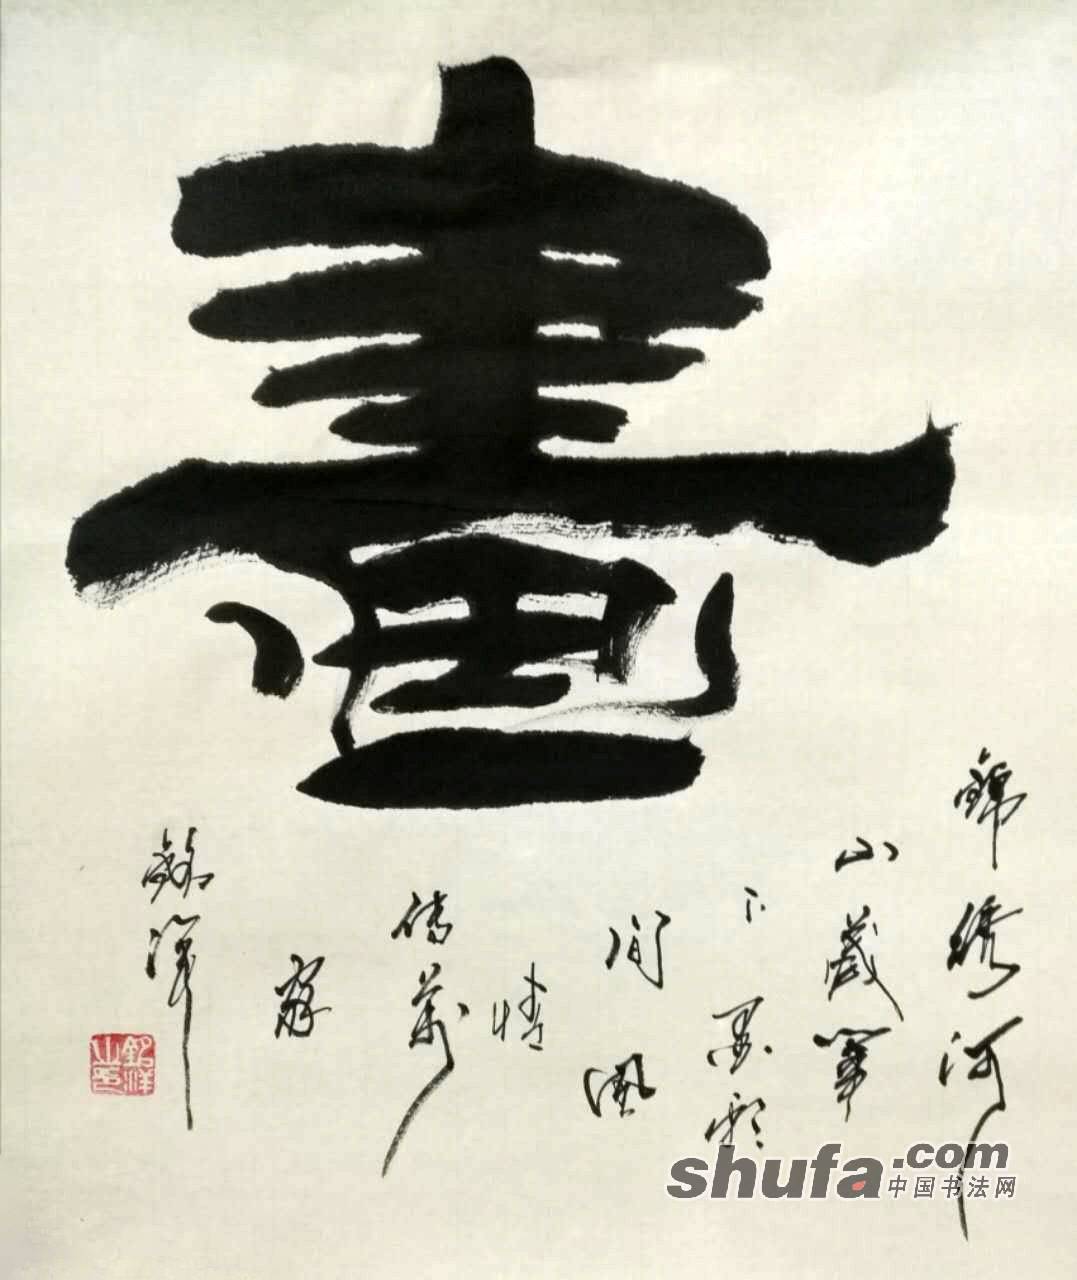 畫
錦绣河
山藏筆
下墨彩
间風
情
傳萬
家
銘洋
銘洋之印
shufa.com
中国书法网